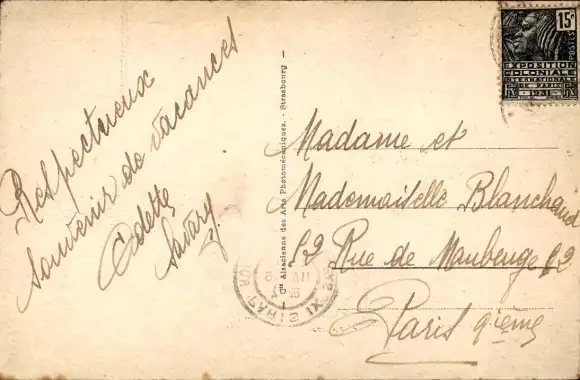 Respectueux
souvenir de vacances
Odette
Savary
Cie Alsacienne des Arts Photomécaniques. - Strasbourg -
15c
POSTES
EXPOSITION
COLONIALE
INTERNATIONALE
DE PARIS
1931
Madame et
Mademoiselle Blanchard
62 Rue de Maubeuge 62
Paris 9ième
PARIS IX